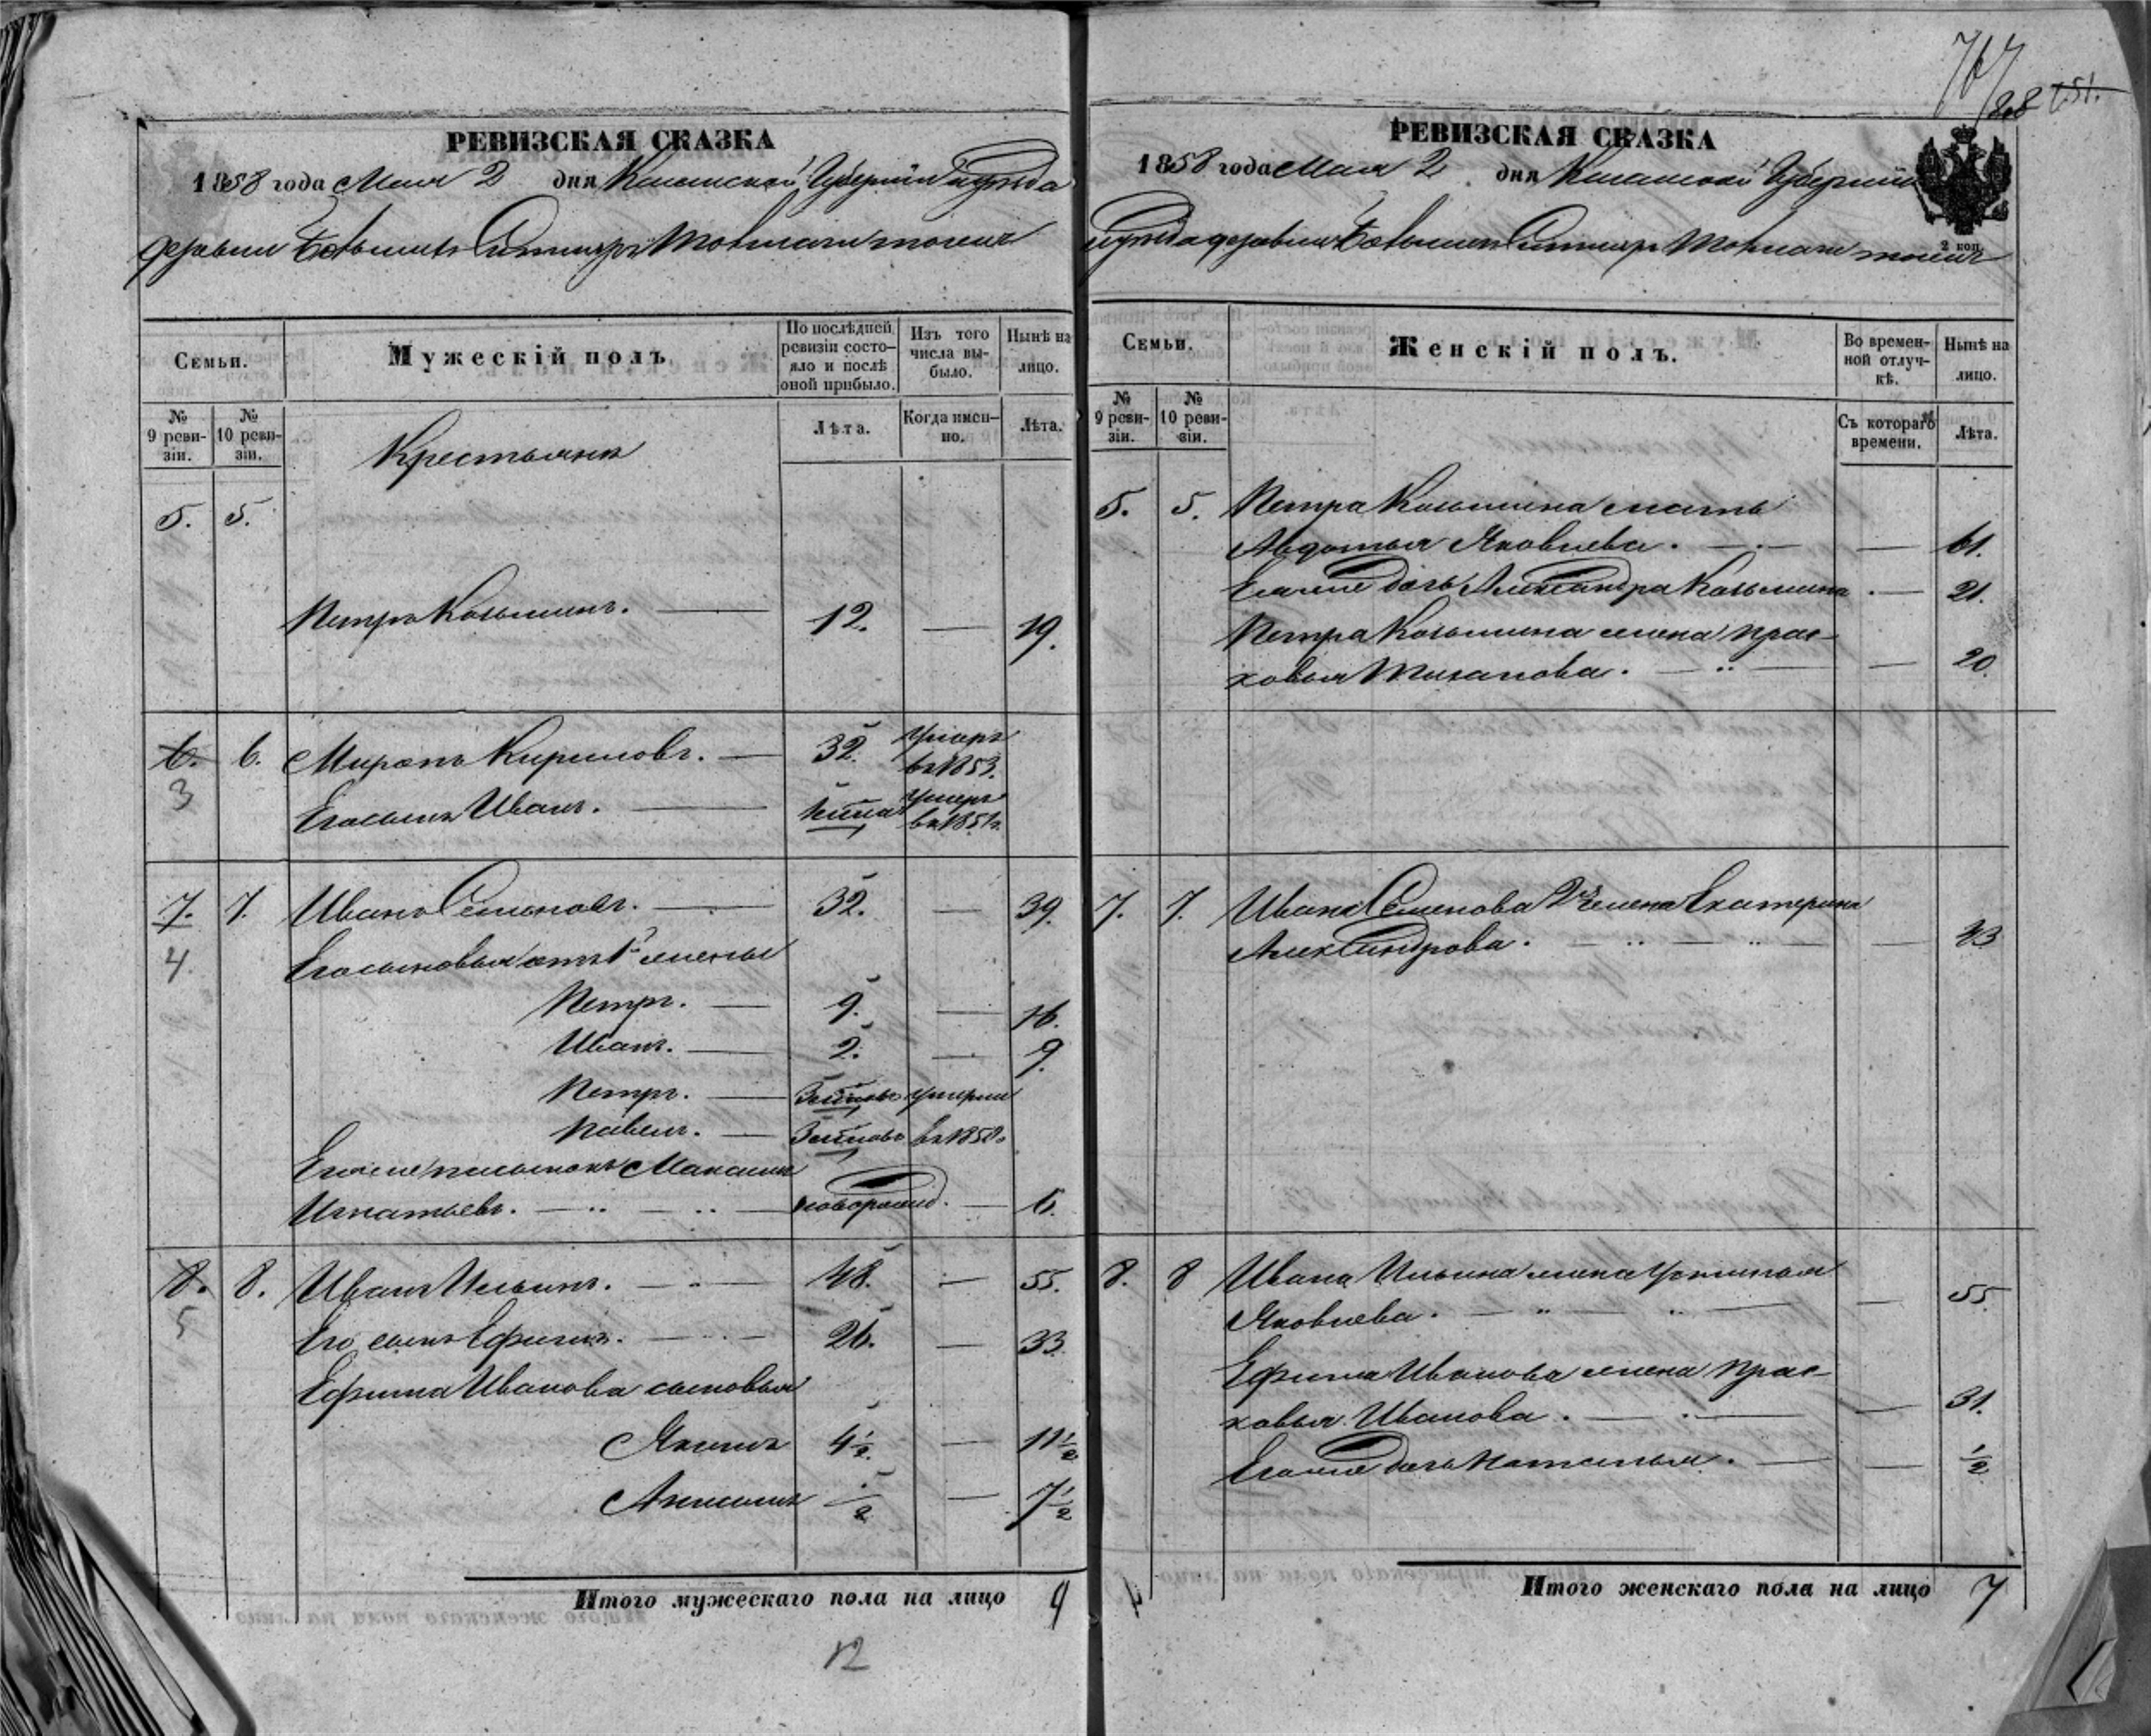 767
808
РЕВИЗСКАЯ СКАЗКА
1858 года Мая 2 дня Казанской Губерніи и уѣзда
деревни Толмачи тоже
Семьи.
Мужескій полъ
По послѣдней ревизіи состояло и послѣ оной прибыло.
Изъ того числа выбыло.
Нынѣ на лицо.
№ 9 ревизіи.
№ 10 ревизіи.
Крестьяне
Лѣта.
Когда именно.
Лѣта.
5. 5.
Петръ Козьминъ. — 12. — 19.
6. 6. Миронъ Кириловъ. — 32. умеръ въ 1853.
3
Его сынъ Иванъ. — умеръ
7. 7. Иванъ Семеновъ. — 32. — 39.
4. Его сыновья отъ 1й жены
Петръ. — 9. — 16.
Иванъ. — 2. — 9.
Петръ. — умерли
Павелъ. — въ 1850
Его же пасынокъ Максимъ
Игнатьевъ. — новорожд. — 6.
8. 8. Иванъ Ильинъ. — 48. — 55.
5 Его сынъ Ефимъ. — 26. — 33.
Ефима Иванова сыновья
Якимъ 4½ — 11½
½ — 7½
Итого мужескаго пола на лицо 9
12
РЕВИЗСКАЯ СКАЗКА
1858 года Мая 2 дня Казанской Губерніи
и уѣзда деревни Толмачи тоже
2 коп.
Семьи.
Женскій полъ.
Во временной отлучкѣ.
Нынѣ на лицо.
№ 9 ревизіи.
№ 10 ревизіи.
Съ котораго времени.
Лѣта.
5. 5. Петра Козьмина мать
Авдотья Яковлева. — — 61.
Его же дочь Александра Козьмина. — 21.
Петра Козьмина жена Прас-
ковья — — 20
7. 7. Ивана Семенова 2я жена Екатерина
Александрова. — — 43
8. 8 Ивана Ильина жена Устинья
Яковлева. — — 55
Ефима Иванова жена Прас-
ковья Иванова. — — 31.
Его же дочь Наталья. — — ½
Итого женскаго пола на лицо 7